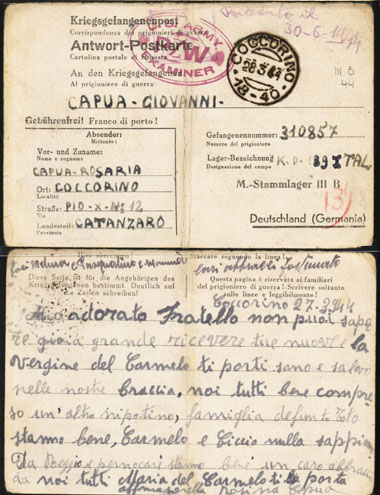 Kriegsgefangenenpost
Corrispondenza dei prigionieri di
Antwort-Postkarte
Cartolina postale di risposta
An den Kriegsgefangenen
Al prigioniero di guerra
U.S. ARMY
P.W.
EXAMINER
30-6-
COCCORINO
18-40
III B
44
CAPUA - GIOVANNI -
Gebührenfrei! Franco di porto!
Absender:
Mittente:
Vor- und Zuname:
Nome e cognome
CAPUA - ROSARIA
Ort: COCCORINO
Località
Straße: PIO - X - Nº 12
Via
Landesteil: CATANZARO
Provincia
Gefangenennummer: 310857
Numero del prigioniero
Lager-Bezeichnung
Designazione del campo
M.-Stammlager III B
13
Deutschland (Germania)
Diese Seite ist für die Angehörigen des
Kriegsgefangenen bestimmt Deutlich auf
die Zeilen schreiben!
Staccare seguendo la linea!
Questa pagina è riservata ai familiari
del prigioniero di guerra! Scrivere soltanto
sulle linee e leggibilmente!
Coccorino 27-3-944
Mio adorato Fratello non puoi sape
re gioia grande ricevere tue nuove la
Vergine del Carmelo ti porti sano e salvo
nelle nostre braccia, noi tutti bene compre
so un'altro nipotino, famiglia
stanno bene, Carmelo e Ciccio nulla sappiamo
Da Reggio e stanno bene un caro abbraccio
da noi tutti Maria del Carmelo ti la porta
Rosina Capua